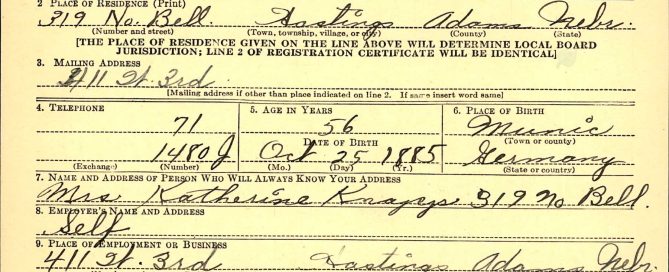 2. PLACE OF RESIDENCE (Print)
319 No. Bell. Hastings Adams Nebr.
(Number and street) (Town, township, village, or city) (County) (State)
[THE PLACE OF RESIDENCE GIVEN ON THE LINE ABOVE WILL DETERMINE LOCAL BOARD
JURISDICTION; LINE 2 OF REGISTRATION CERTIFICATE WILL BE IDENTICAL]
3. MAILING ADDRESS
411 W. 3rd
[Mailing address if other than place indicated on line 2. If same insert word same]
4. TELEPHONE 5. AGE IN YEARS 6. PLACE OF BIRTH
71 56 Munic
DATE OF BIRTH (Town or county)
1480 J Oct 25 1885 Germany
(Exchange) (Number) (Mo.) (Day) (Yr.) (State or country)
7. NAME AND ADDRESS OF PERSON WHO WILL ALWAYS KNOW YOUR ADDRESS
Mrs Katherine 319 No Bell.
8. EMPLOYER'S NAME AND ADDRESS
Self
9. PLACE OF EMPLOYMENT OR BUSINESS
411 W. 3rd Hastings Adams Nebr.